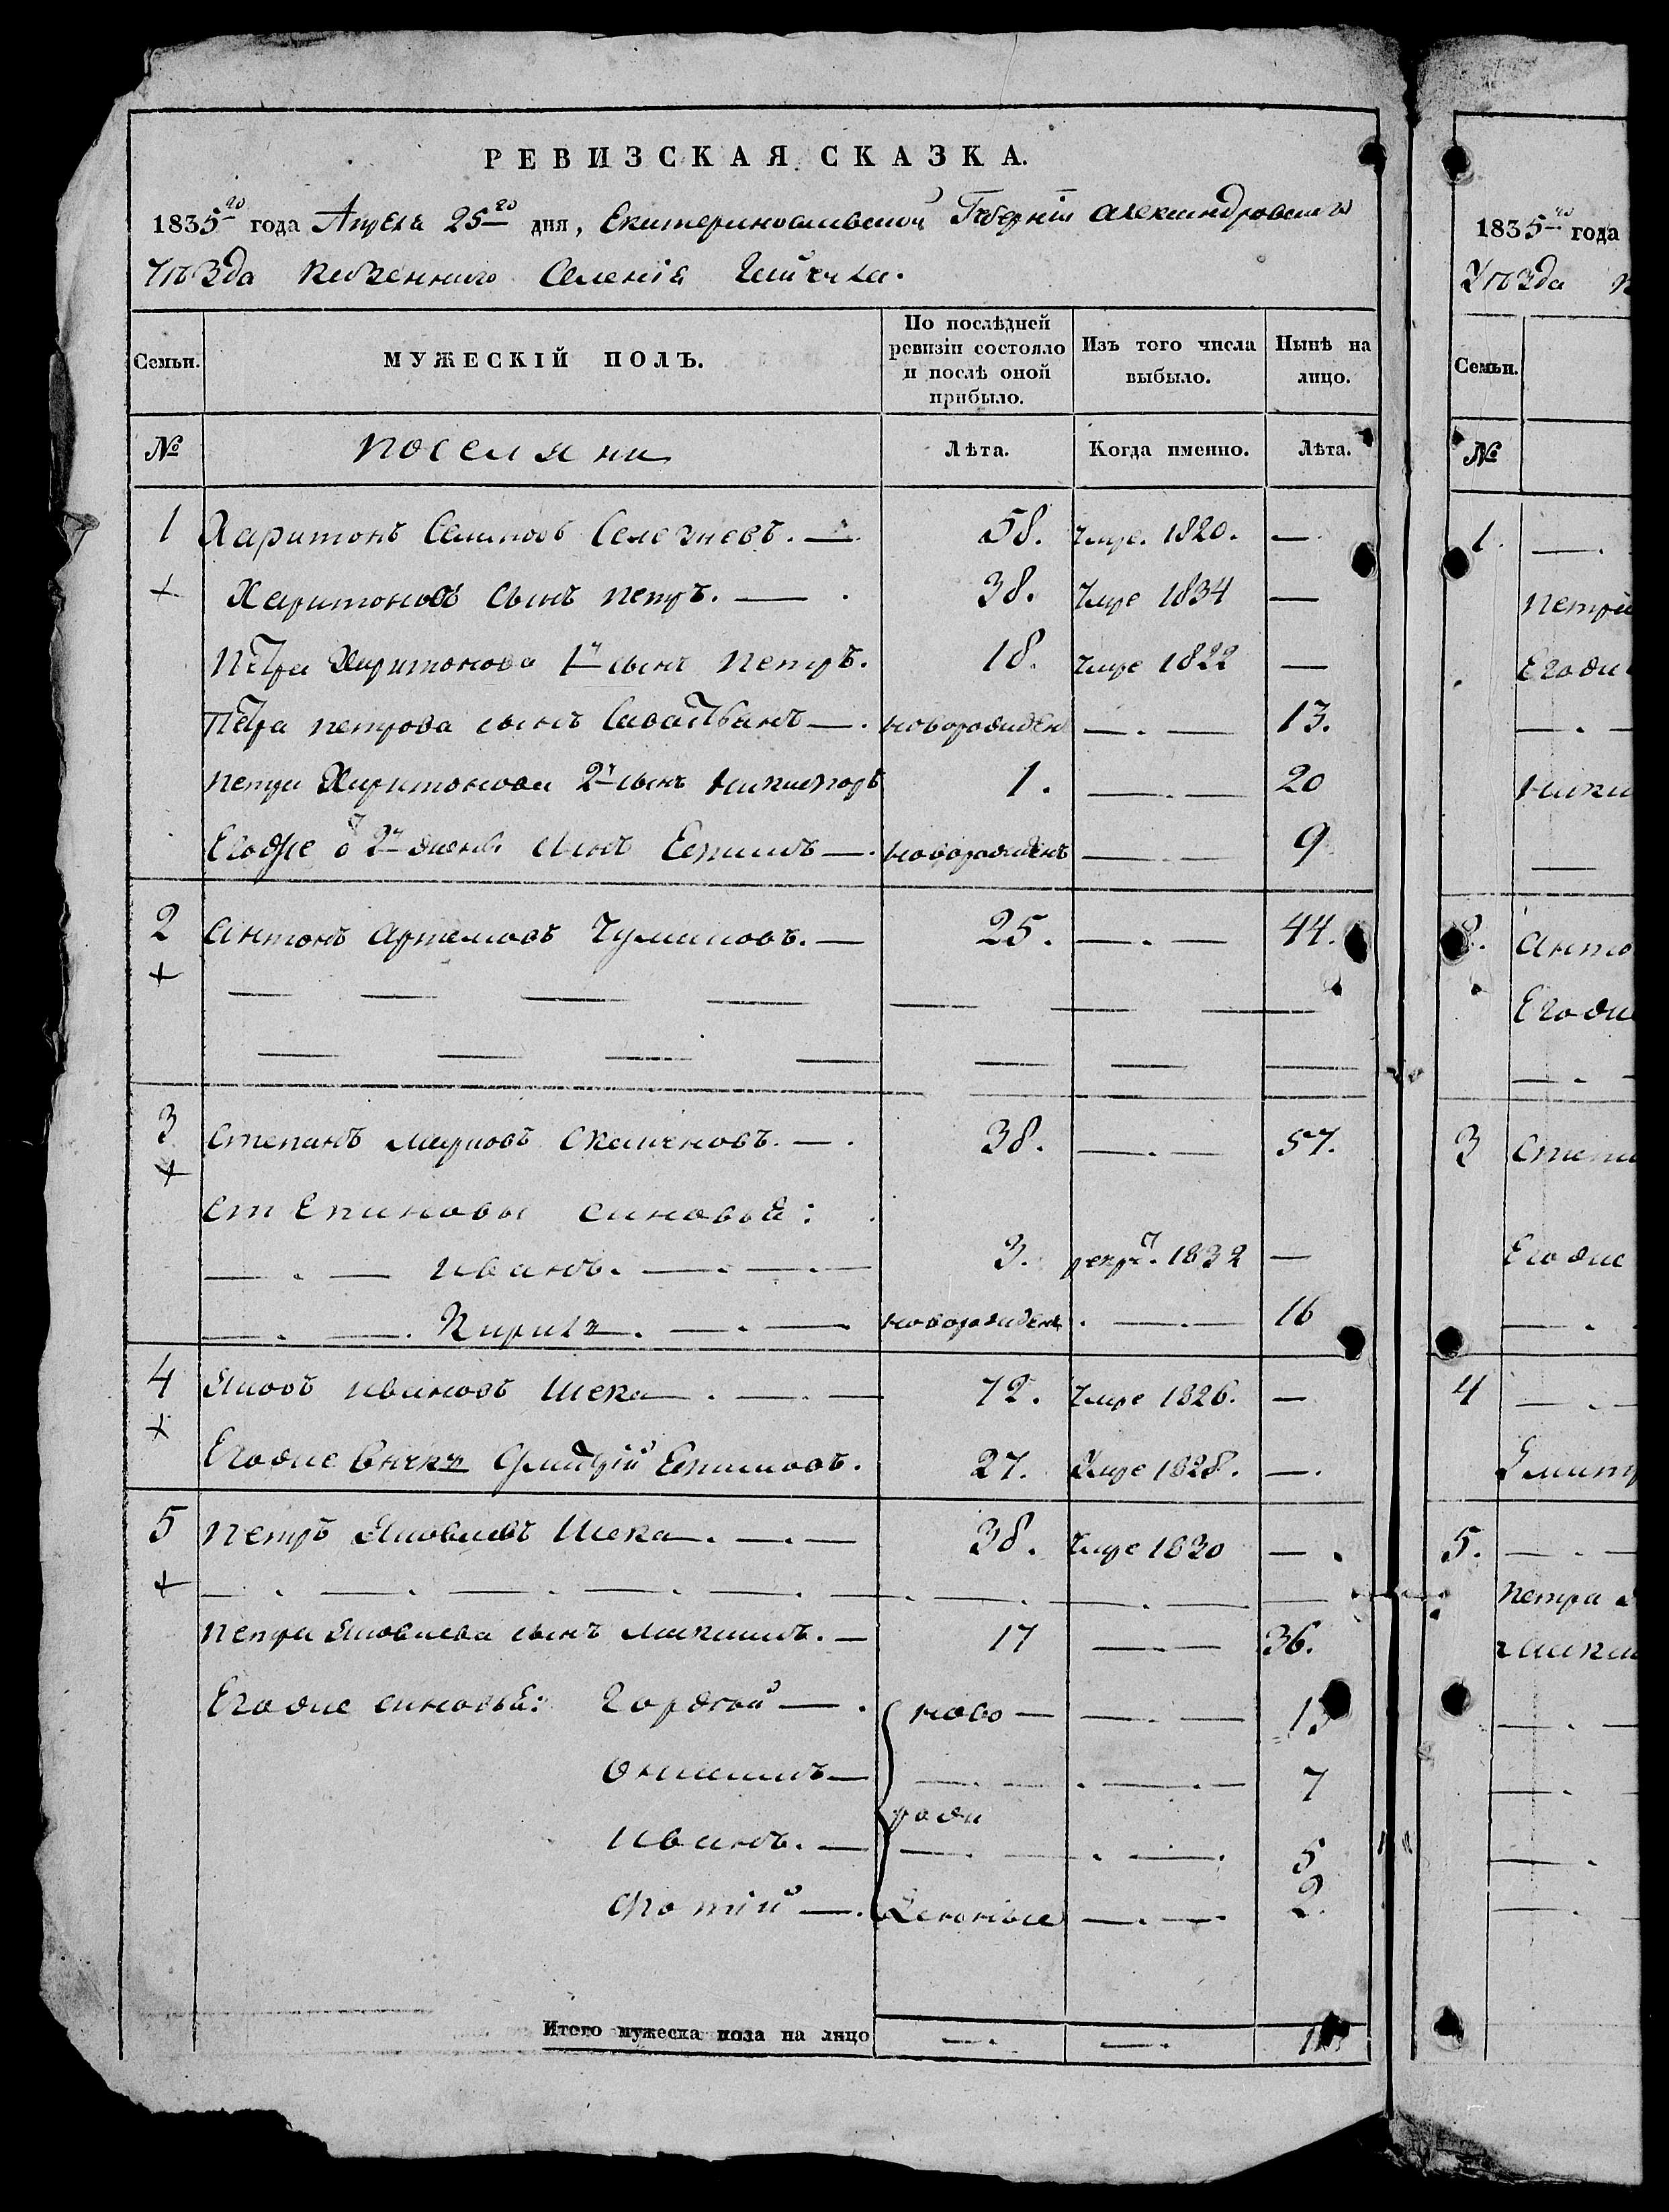 РЕВИЗСКАЯ СКАЗКА.
1835го года Апреля 25го дня, Екатеринославской Губерніи Александровскаго
Уѣзда казеннаго Селенія
Семьи.
МУЖЕСКІЙ ПОЛЪ.
По послѣдней ревизіи состояло и послѣ оной прибыло.
Изъ того числа выбыло.
Нынѣ на лицо.
№
поселяни
Лѣта.
Когда именно.
Лѣта.
1 Харитонъ Селезневъ. — 58. Умре. 1820. —
+ Харитоновъ сынъ петръ. — 38. Умре 1834 —
Петра Харитонова 1й сынъ петръ. 18. Умре 1822 —
Петра петрова сынъ — новорожден — 13.
петра Харитонова 2й сынъ никифоръ 1. — 20
Егоже о 2й жены сынъ Ефимъ — новорожденъ — 9
2 антонъ артемовъ Чумаковъ. — 25. — 44.
+
3 степанъ марковъ 38. — 57.
+
степановы синовья:
иванъ. — 3. рекру. 1832 —
Кирила. — новорожденъ — 16
4 Яковъ ивановъ Шека — 72. Умре 1826. —
+
Егоже внукъ Дмитрій Ефимовъ. 27. Умре 1828. —
5 петръ Яковлевъ Шека — 38. Умре 1820 —
+
петра Яковлева сынъ максимъ. — 17 — 36.
Егоже синовья: Гордѣй — ново —
Онисимъ — 7
роди
иванъ. — 5
Фотій — денные — 2.
Итого мужеска пола на лицо — —
1835го года
Уѣзда
Семьи.
№
1.
петра
Егоже
2.
анто
Егоже
3
степа
Егоже
4
Дмитр
5.
петра